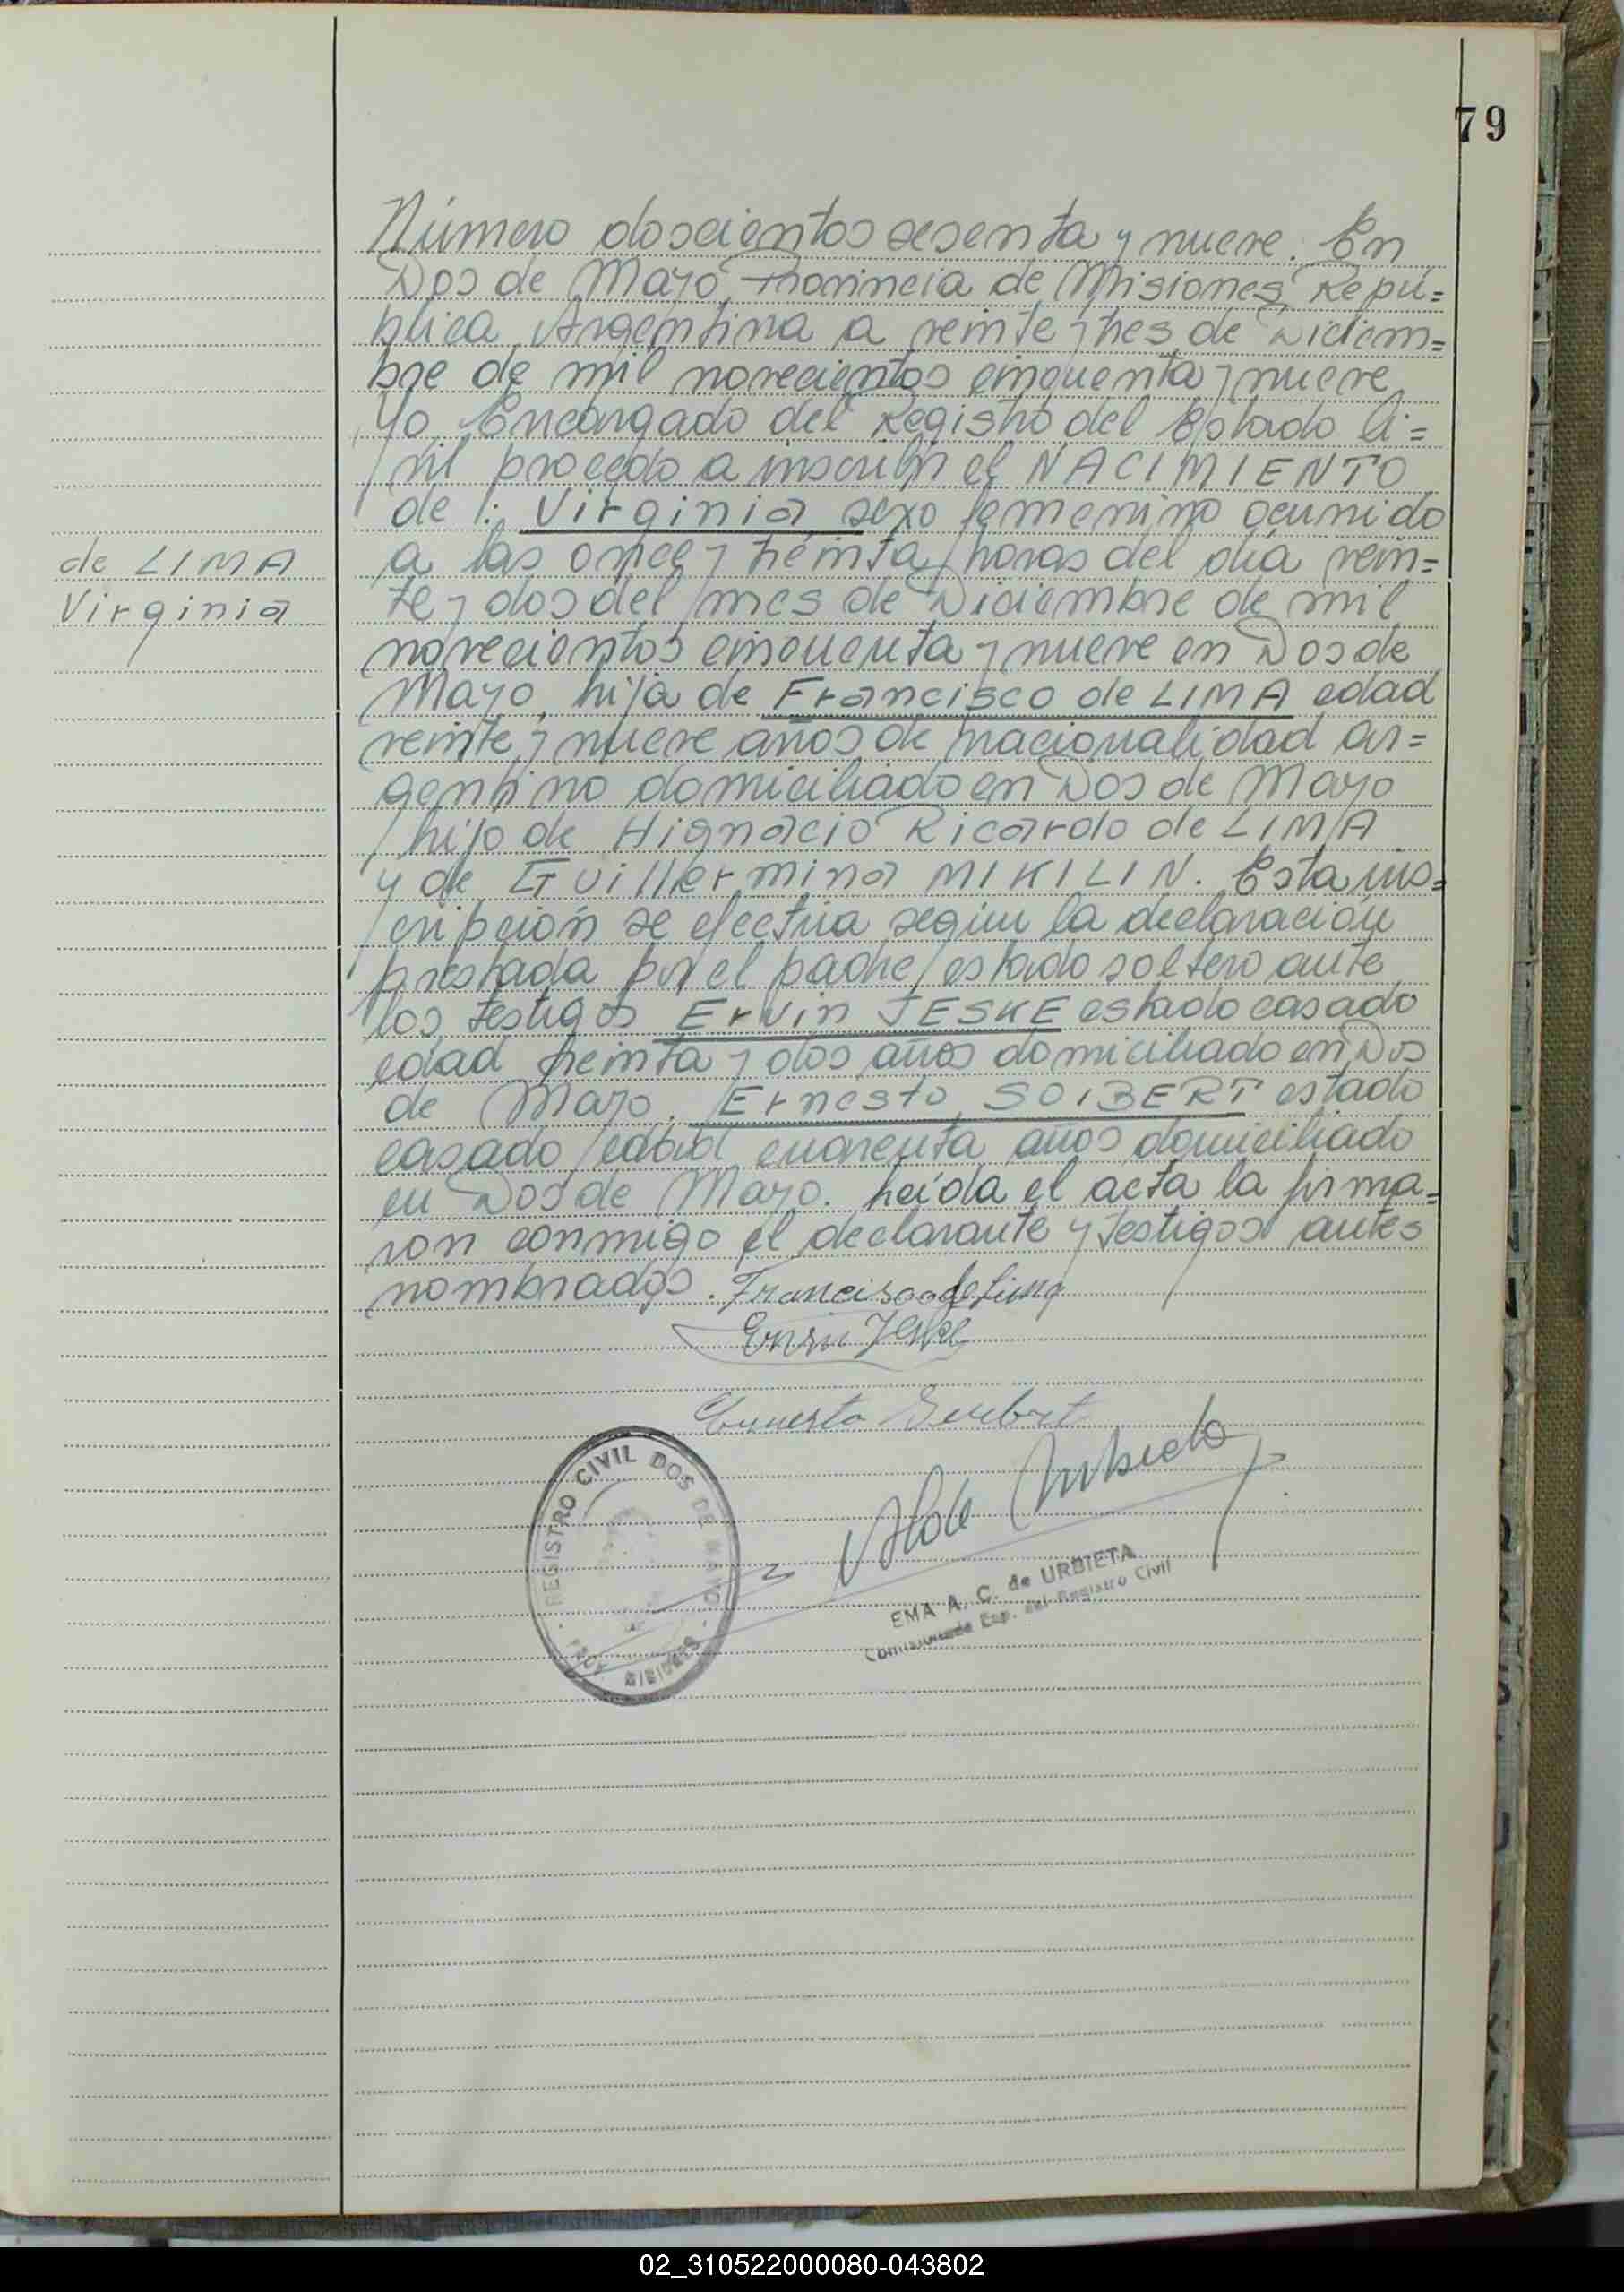 79
Número doscientos sesenta y nueve. En
Dos de Mayo Provincia de Misiones Repú=
blica Argentina a veinte y tres de Diciem=
bre de mil novecientos cincuenta y nueve
Yo Encargado del Registro del Estado Ci=
vil procedo a inscribir el NACIMIENTO
de : Virginia sexo femenino ocurrido
a las once y treinta horas del día vein=
de LIMA
Virginia
te y dos del mes de Diciembre de mil
novecientos cincuenta y nueve en Dos de
Mayo, hija de Francisco de LIMA edad
veinte y nueve años de nacionalidad ar=
gentino domiciliado en Dos de Mayo
hijo de Hignacio Ricardo de LIMA
y de Guillermina MIKILIN. Esta ins=
cripción se efectúa según la declaración
prestada por el padre estado soltero ante
los testigos Ervin JESKE estado casado
edad treinta y dos años domiciliado en Dos
de Mayo. Ernesto SOIBERT estado
casado edad cuarenta años domiciliado
en Dos de Mayo. Leída el acta la firma=
ron conmigo el declarante y testigos antes
nombrados. Francisco de Lima
Ervin Jeske
Ernesto Seubert
REGISTRO CIVIL DOS DE MAYO - MISIONES
EMA A. C. de URBIETA
Comisionada Esp. del Registro Civil
02_310522000080-043802